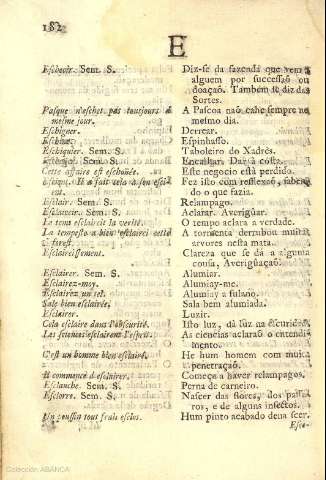 182
E
Eschoir. Sem. S. Diz-se da fazenda que vem a
alguem por successaõ ou
doaçaõ. Tambem se diz das
Sortes.
Pasque n'eschet pas tousjours à A Pascoa naõ cahe sempre no
mesme jour. mesmo dia.
Eschigner. Derrear.
Eschinée. Espinhasso.
Eschiquier. Sem. S. Taboleiro de Xadrès.
Sem. S. Encalhar. Dar á costa.
Cette affaire est eschoüée. Este negocio está perdido.
Il a fait cela à son Fez isso com reflexaõ,
do o que fazia.
Esclair. Sem. S. Relampago.
Esclaircir. Sem. S. Aclarar. Averiguar.
Le tems esclaircit la verité. O tempo aclara a verdade.
La tempeste a bien esclairci cette A tormenta derrubou muitas
forest. arvores nesta mata.
Esclaircissement. Clareza que se dá a alguma
cousa, Averiguaçaõ.
Esclairer. Sem. S. Alumiar.
Esclairez-moy. Alumiay-me.
Esclairez un tel. Alumiay a fulano.
Sale bien esclairée. Sala bem alumiada.
Esclairer. Luzir.
Cela esclaire dans l'obscurité. Isto luz, dá luz na escuridaõ.
Les sciences esclairent l'esprit. As ciencias aclaraõ o entendi-
mento.
C'est un homme bien esclairé. He hum homem com muita
penetraçaõ.
Il commence d'esclairer. Começa a haver relampagos.
Esclanche. Sem. S. Perna de carneiro.
Esclorre. Sem. S. Nascer das flores, dos passa-
ros, e de alguns insectos.
Un poussin tout frais esclos. Hum pinto acabado de nascer.
Colección ABANCA